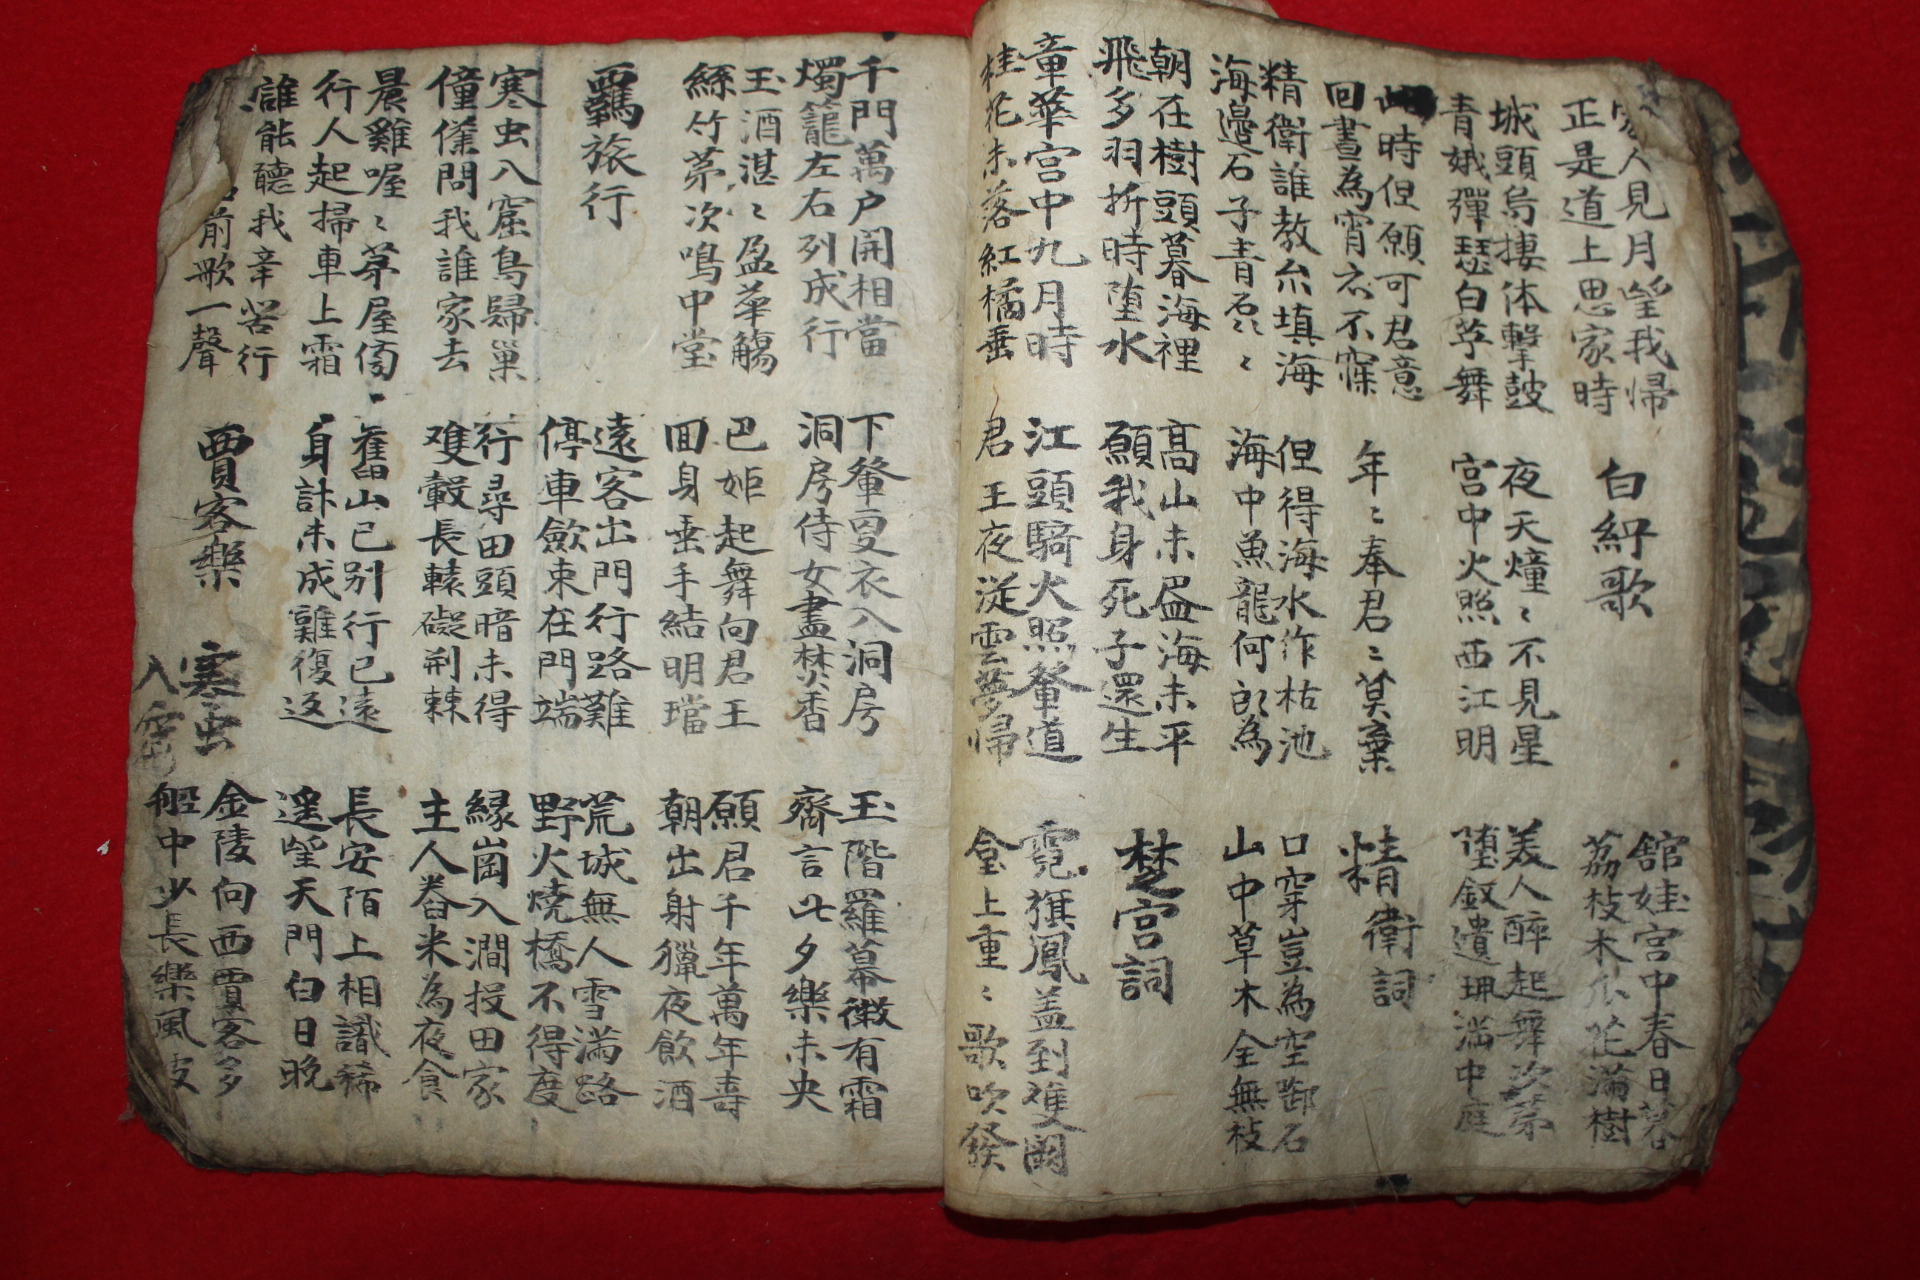 家人見月望我帰
正是道上思家時
白紵歌
舘娃宮中春日暮
荔枝木瓜花滿樹
城頭烏捿休擊鼓
青娥彈瑟白苧舞
夜天燑〻不見星
宮中火照西江明
美人醉起舞次第
堕釵遺珥滿中庭
此時但願可君意
回晝為宵亦不寐
年〻奉君〻莫棄
精衛詞
精衛誰教尒填海
海邊石子青磊〻
但得海水作枯池
海中魚龍何所為
口穿豈為空啣石
山中草木全無枝
朝在樹頭暮海裡
飛多羽折時堕水
高山未盡海未平
願我身死子還生
楚宮詞
章華宮中九月時
桂花未落紅橘垂
江頭騎火照輦道
君王夜從雲夢帰
霓旗鳳盖到雙闕
臺上重〻歌吹發
千門萬户開相當
燭籠左右列成行
下輦更衣入洞房
洞房侍女盡焚香
玉階羅幕微有霜
齊言此夕樂未央
玉酒湛〻盈華觴
絲竹第次鳴中堂
巴姬起舞向君王
回身垂手結明璫
願君千年萬年壽
朝出射獵夜飲酒
羈旅行
遠客出門行路難
停車歛束在門端
荒城無人雪滿路
野火燒橋不得度
寒虫入窟鳥歸巢
僮僕問我誰家去
行尋田頭暗未得
雙轂長轅礙荊棘
緣崗入澗投田家
主人舂米為夜食
晨雞喔〻茅屋傍
行人起掃車上霜
舊山已別行已遠
身計未成難復返
長安陌上相識稀
遥望天門白日晚
誰能聽我辛苦行
前歌一聲
賈客樂
寒虫
入窟
金陵向西賈客多
船中少長樂風波